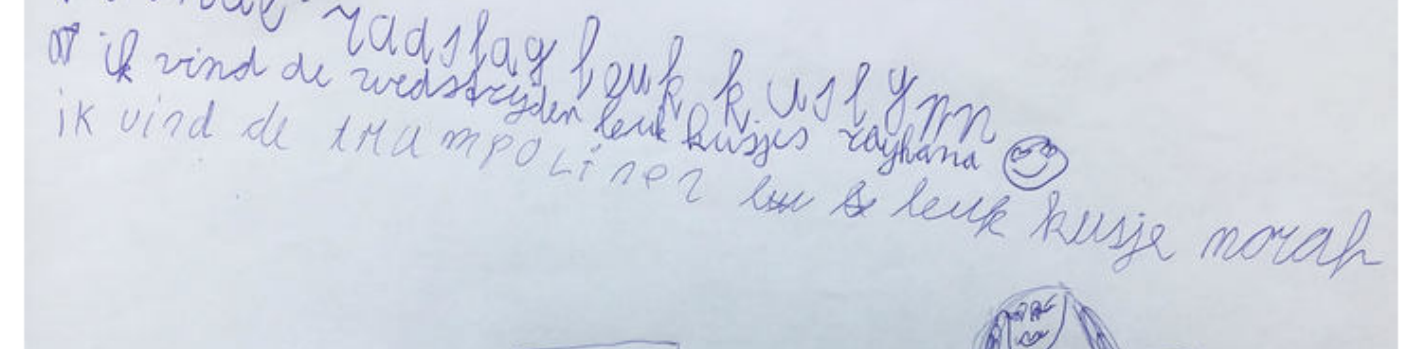 radslag leuk kus lynn
ik vind de wedstrijden leuk kusjes rayhana
ik vind de trampolinen leuk kusje norah